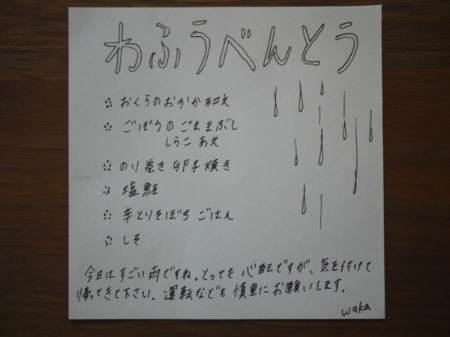 わふうべんとう
おくらのおかか和え
ごぼうのごままぶし
しらこ あえ
のり巻き卵子焼き
塩鮭
牛とりそぼろ ごはん
しそ
今日はすごい雨ですね。とっても心配ですが、気を付けて
帰ってきて下さい。運転なども慎重にお願いします。
waka